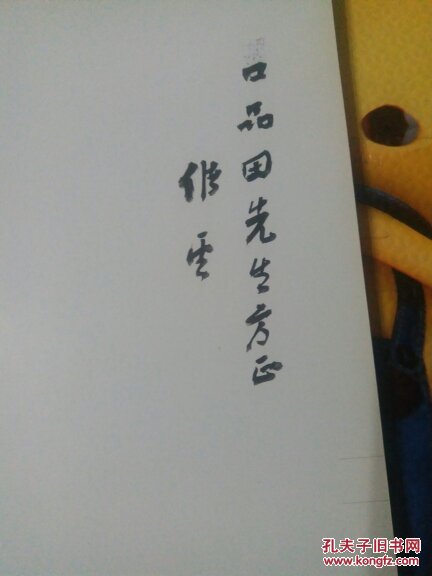 口品田先生方正
修云
孔夫子旧书网
www.kongfz.com